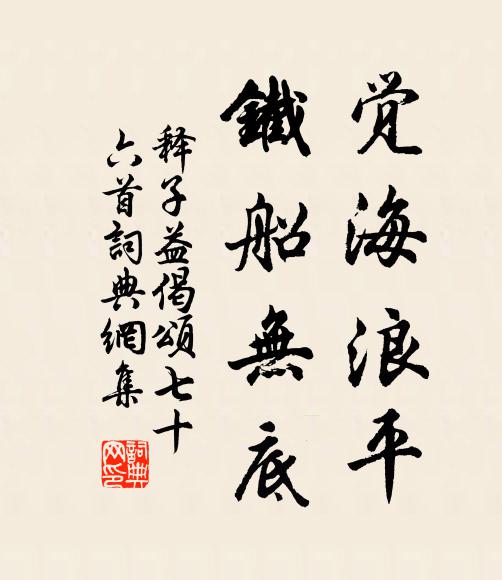 觉海浪平
鐵船無底
释子益偈頌七十
六首詞典網集
詞典
网印